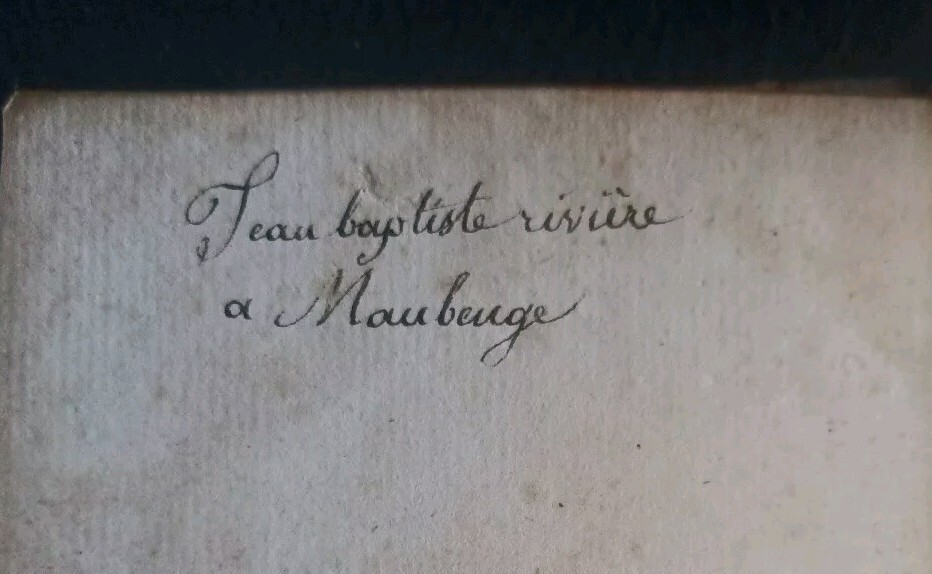 Jean baptiste rivière
a Maubeuge